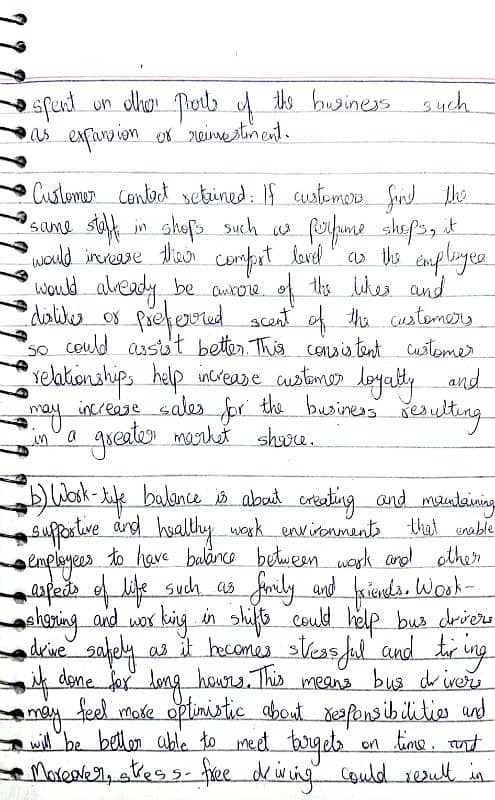 spent on other parts of the business such
as expansion or reinvestment.
Customer contact retained: If customers find the
same staff in shops such as perfume shops, it
would increase their comfort level as the employee
would already be aware of the likes and
dislikes or preferred scent of the customers
so could assist better. This consistent customer
relationships help increase customer loyalty and
may increase sales for the business resulting
in a greater market share.
b) Work-life balance is about creating and maintaining
supportive and healthy work environments that enable
employees to have balance between work and other
aspects of life such as family and friends. Work-
sharing and working in shifts could help bus drivers
drive safely as it becomes stressful and tiring
if done for long hours. This means bus drivers
may feel more optimistic about responsibilities and
will be better able to meet targets on time. and
Moreover, stress-free driving could result in